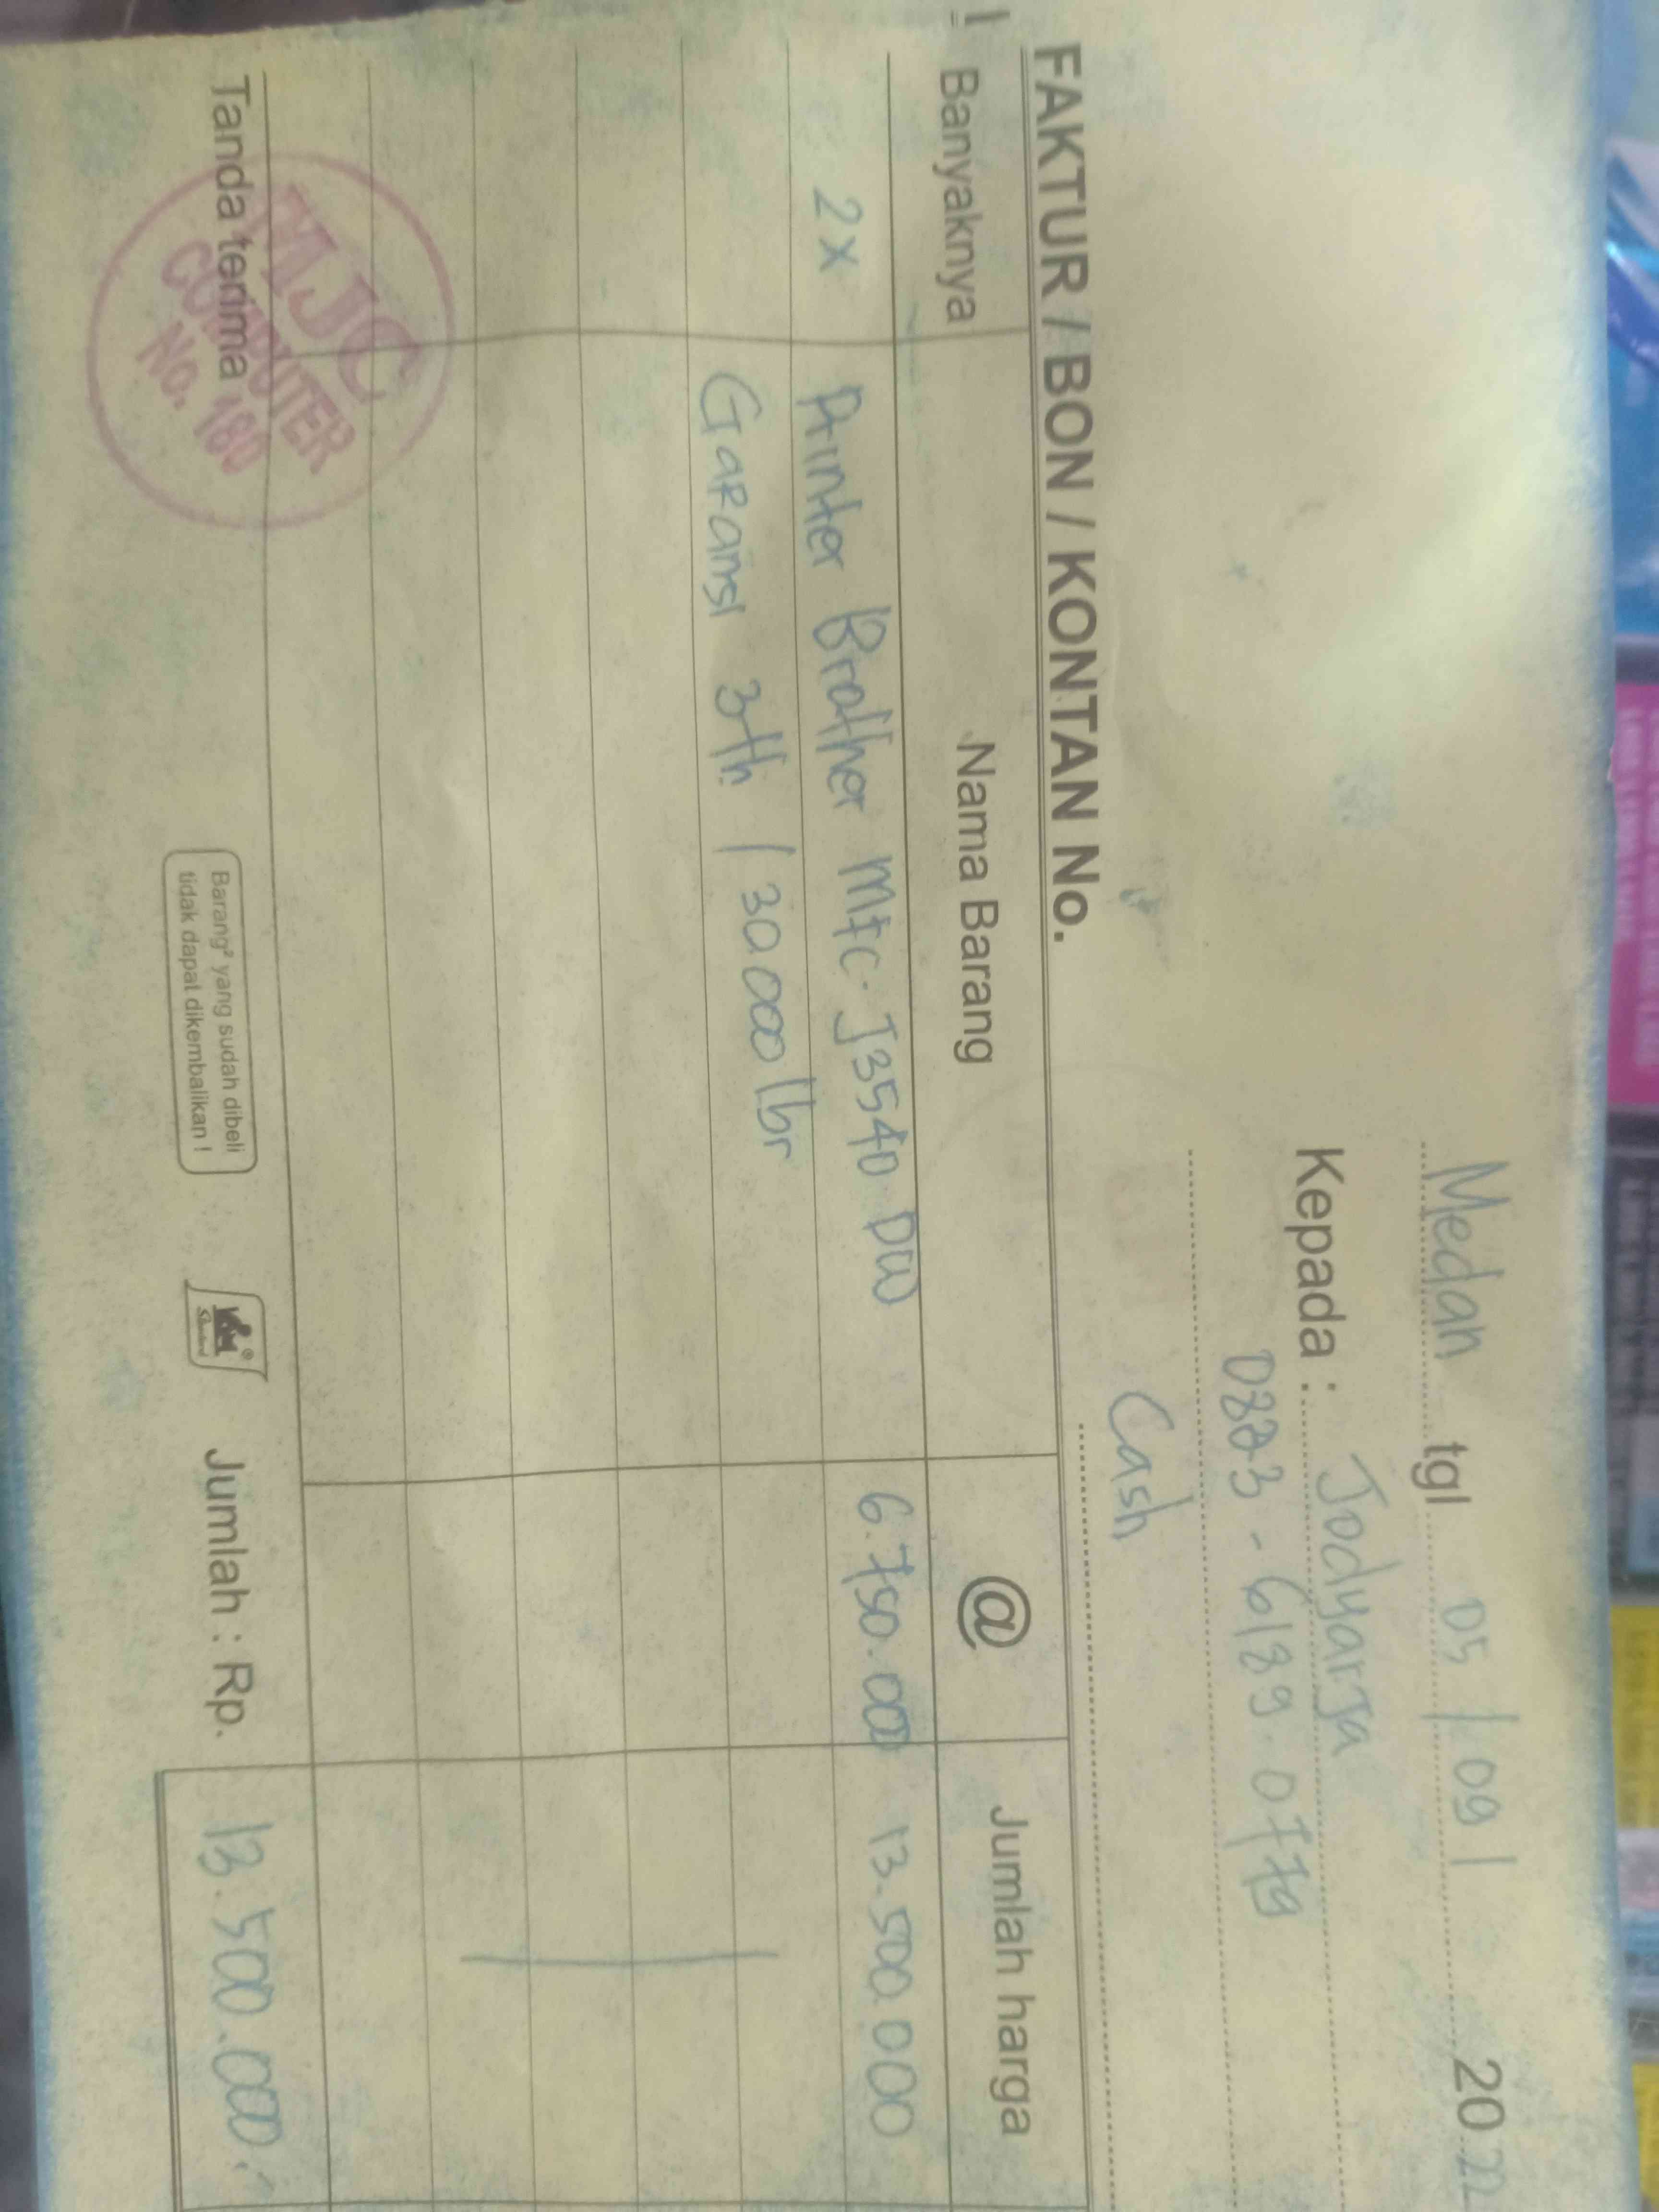 Medan tgl 05 / 09 / 20 22
Kepada : Jodyarja
0823 - 6189 . 0779
Cash
FAKTUR / BON / KONTAN No.
Banyaknya Nama Barang @ Jumlah harga
2x Printer Brother Mfc. J3540 DW 6.750.000 13.500.000
Garansi 3th / 30.000 lbr
Tanda terima
MJC
COMPUTER
No. 180
Barang² yang sudah dibeli
tidak dapat dikembalikan !
Jumlah : Rp. 13.500.000.-